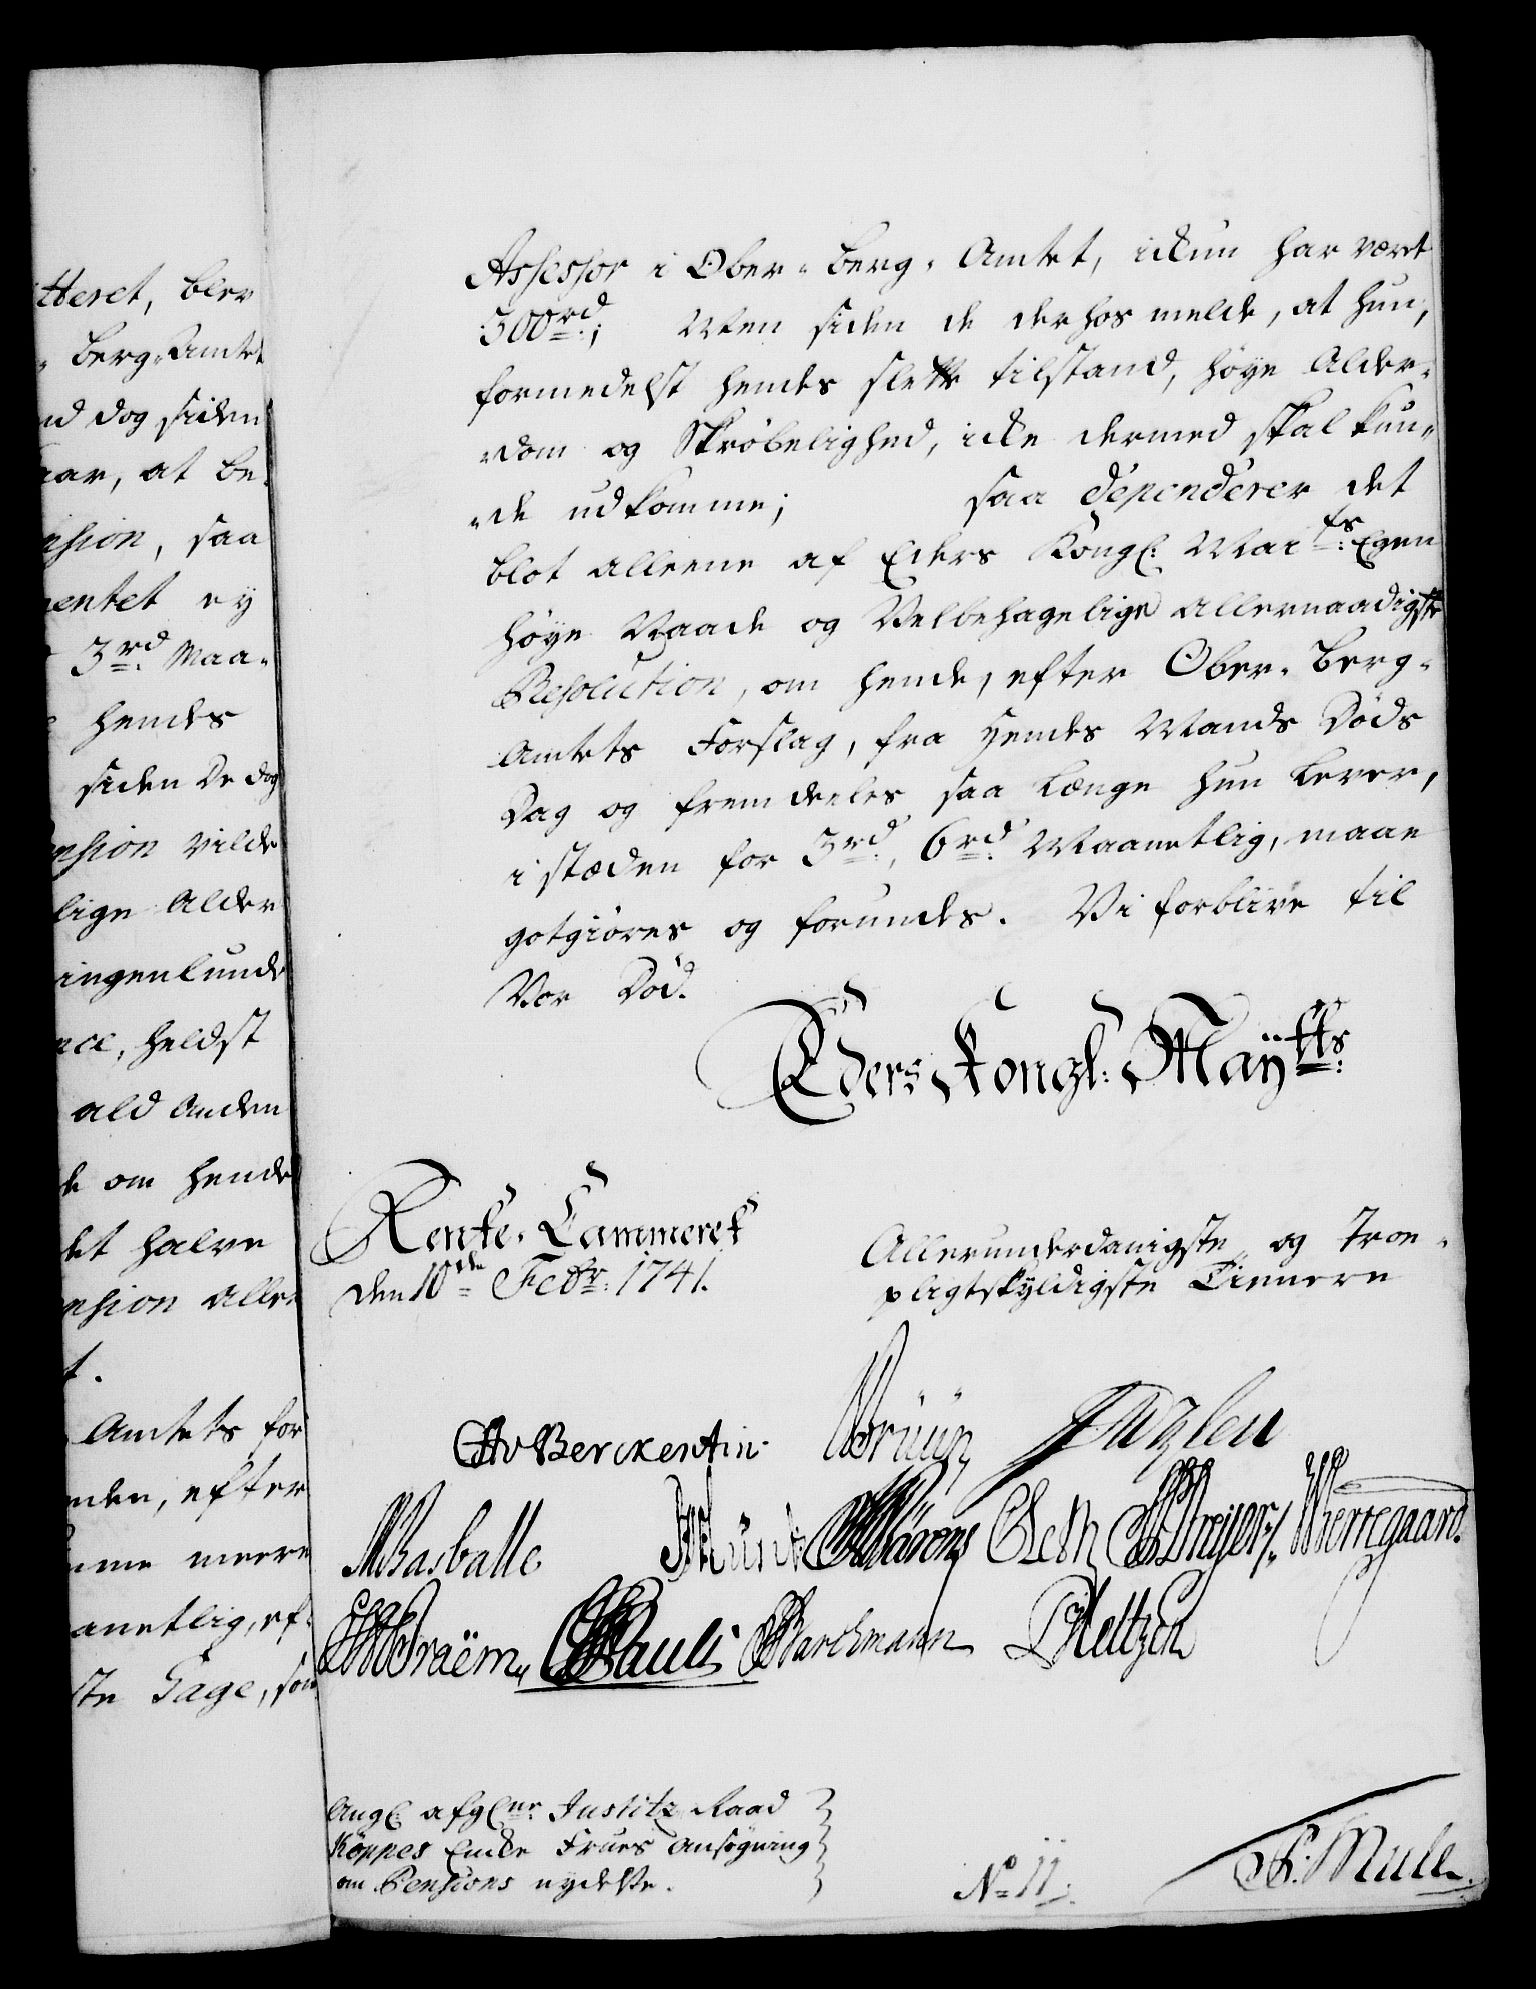 tteret, blev
Berg-Amtet
nd dog siden
aar, at be-
nsion, saa
mentet ey
3 rd Maa-
hendes
siden De dog
ension vilde
lige Alder
ingenlunde
nce, heldst
ald Anden
de om hende
det halve
ension aller
t.
Amtets for
nden, efter
mme meere
anetlig, ef-
ste Gage, som
Assessor i Ober-Berg-Amtet, ickun har været
300 rd.; Men siden de derhos melde, at hun,
formedelst hendes slette tilstand, høye Alder-
dom og Skrøbelighed, icke dermed skal kun-
de udkomme; saa dependerer det
blot alleene af Eders Kongl: Mai ts: Egen
høye Naade og Velbehagelige allernaadigste
Resolution, om hende, efter Ober-Berg-
Amtets Forslag, fra hendes Mands Døds
Dag og fremdeeles saa længe hun lever,
i stæden for 3 rd., 6 rd. Maanetlig, maae
gotgiøres og forundes. Vi forblive til
Vor Død.
Eders Kongl: Maÿtts:
Rente-Cammeret
den 10de Febr: 1741.
Allerunderdanigste og Troe-
pligtskyldigste Tienere
CAvBerckentin. Brüün
MBasballe Münt Wærens Cleth Dreijer Wærregaard
Braëm Pauli Barchmann Heltzen
Ang: afgl ne Justitz Raad
Köppes Encke Frues Ansøgning
om Pensions nydelse.
No 11.
F: Müller